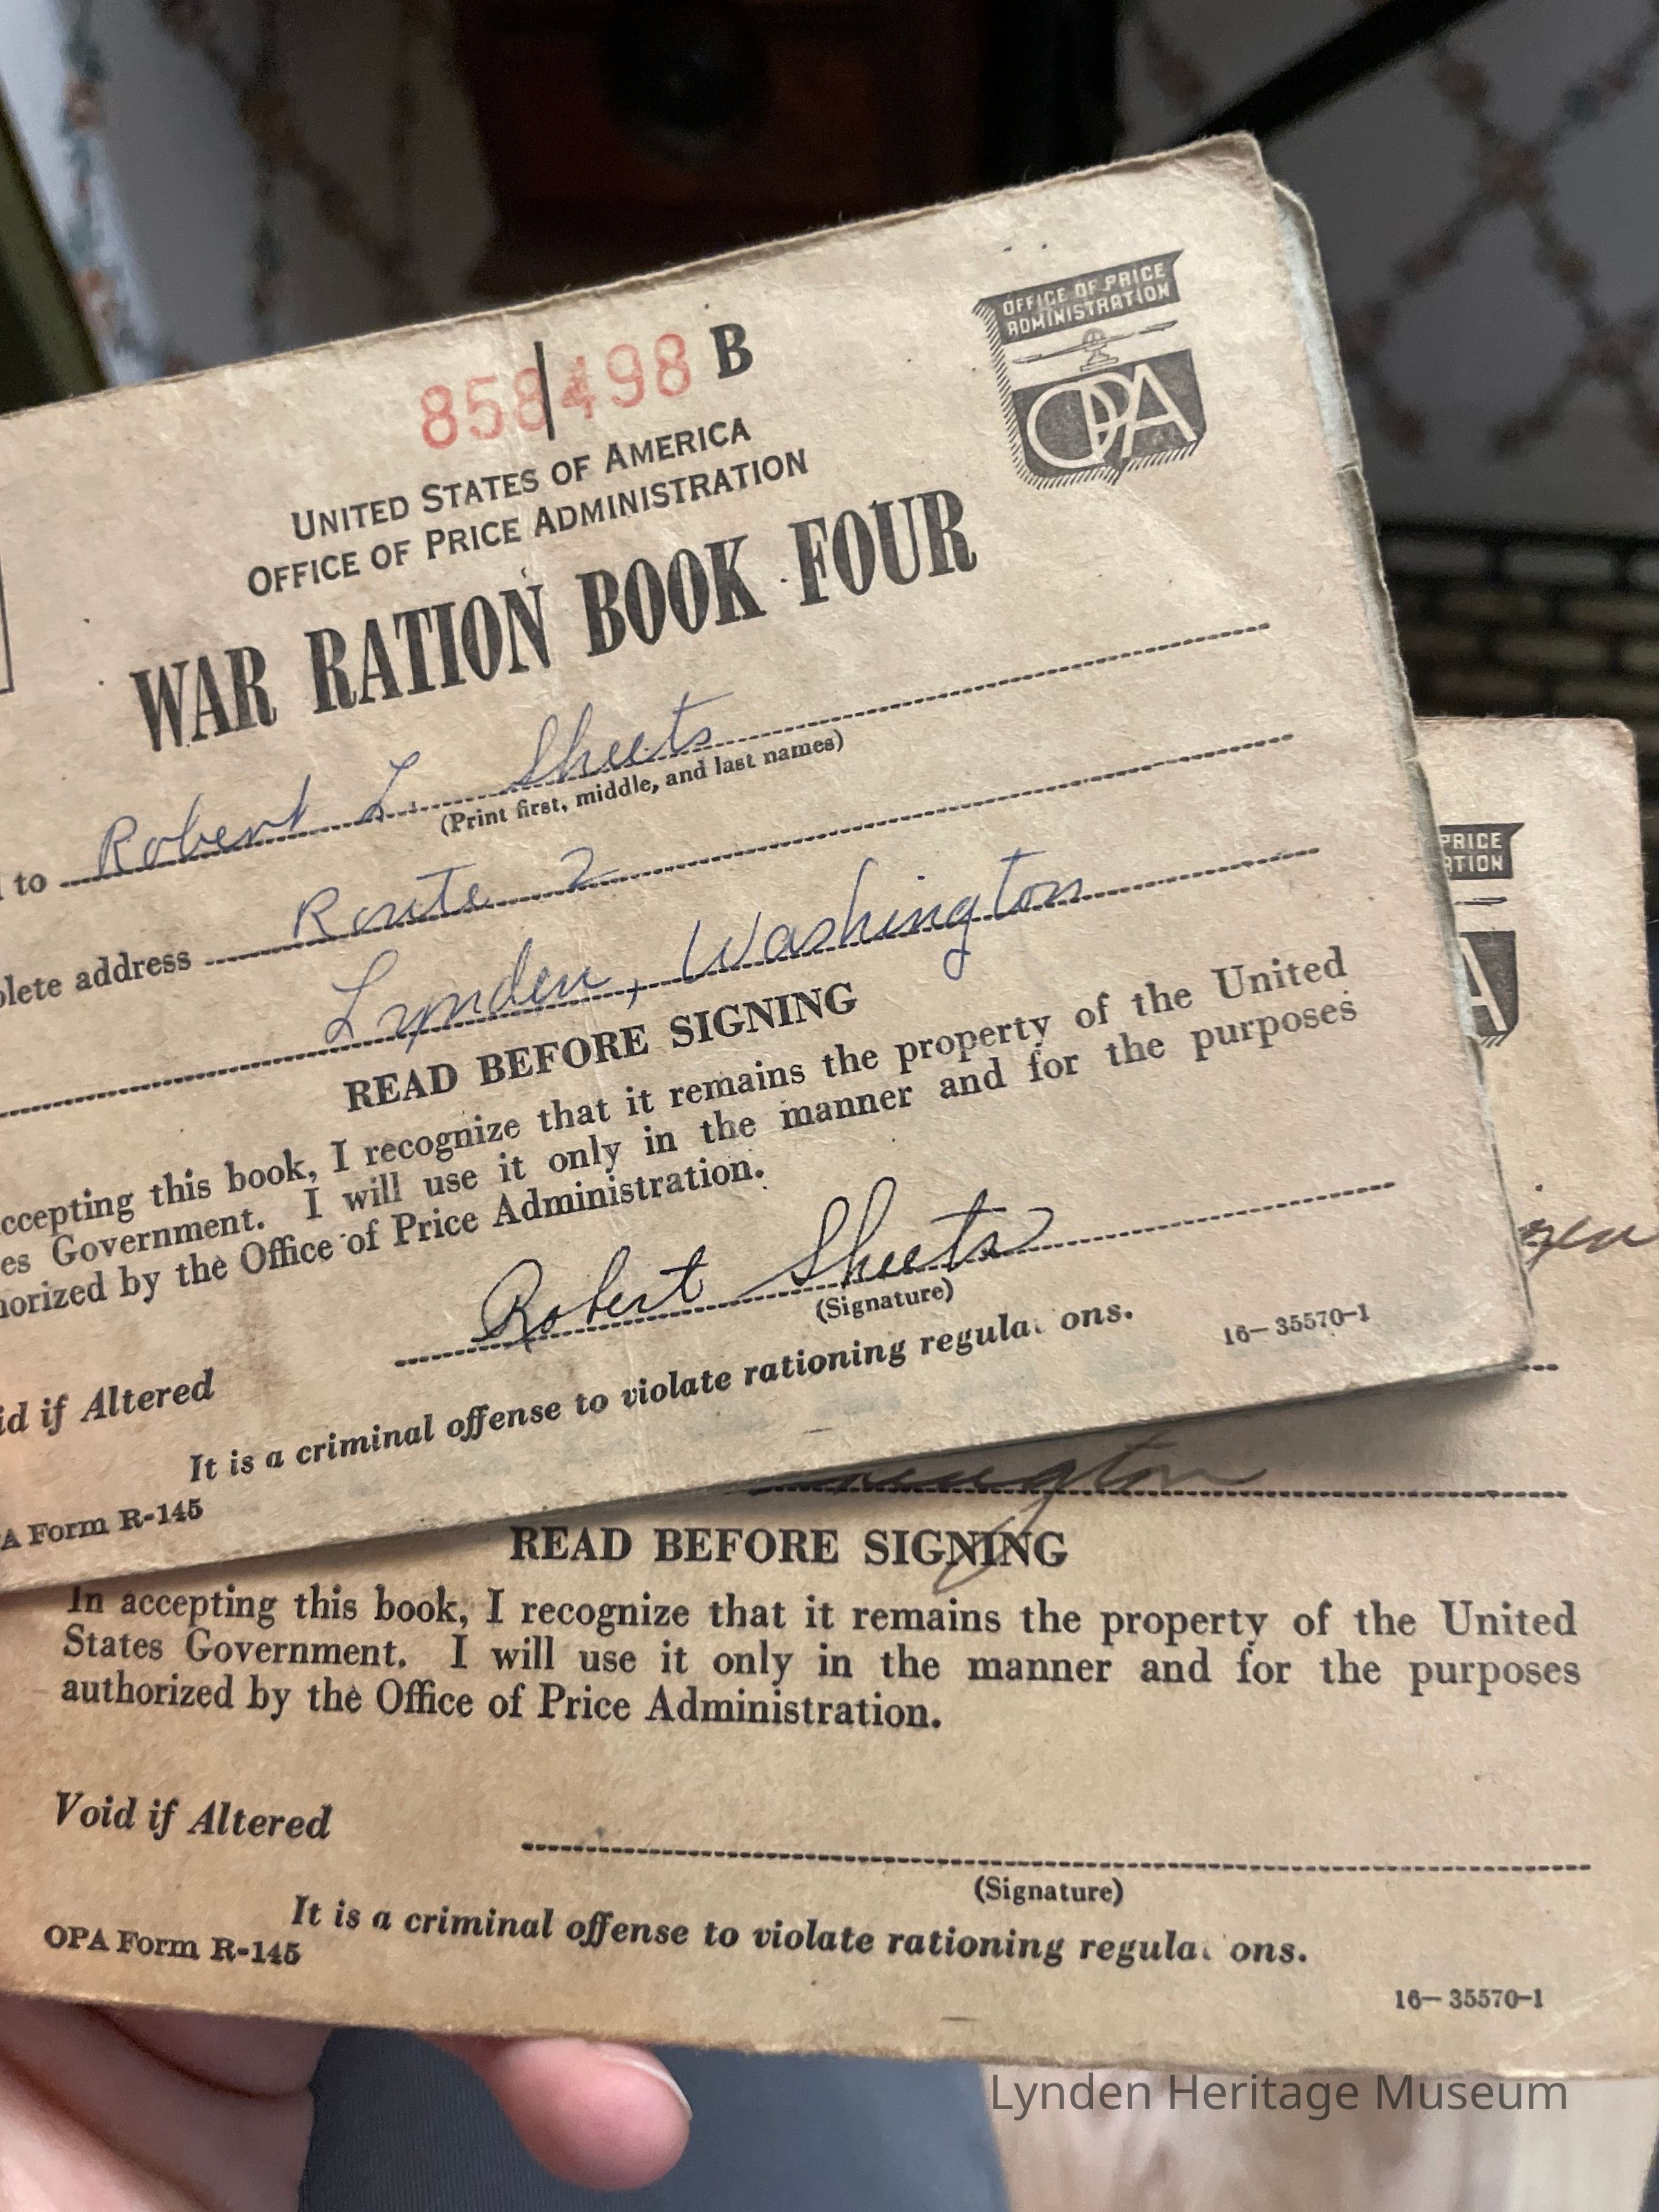 858498 B
OFFICE OF PRICE
ADMINISTRATION
OPA
UNITED STATES OF AMERICA
OFFICE OF PRICE ADMINISTRATION
WAR RATION BOOK FOUR
to Robert L. Sheets
(Print first, middle, and last names)
plete address Route 2
Lynden, Washington
READ BEFORE SIGNING
ccepting this book, I recognize that it remains the property of the United
es Government. I will use it only in the manner and for the purposes
horized by the Office of Price Administration.
Robert Sheets
(Signature)
id if Altered
It is a criminal offense to violate rationing regula ons.
A Form R-145
16-35570-1
PRICE
ATION
A
gen
ington
READ BEFORE SIGNING
In accepting this book, I recognize that it remains the property of the United
States Government. I will use it only in the manner and for the purposes
authorized by the Office of Price Administration.
Void if Altered
(Signature)
It is a criminal offense to violate rationing regula ons.
OPA Form R-145
16-35570-1
Lynden Heritage Museum